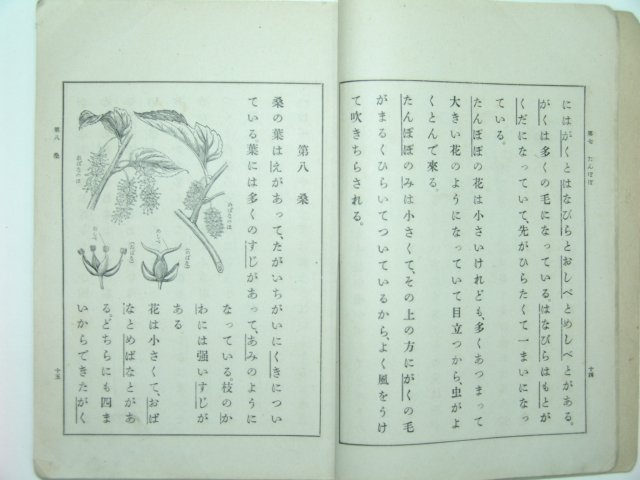 第七 たんぽぽ
にはがくとはなびらとおしべとめしべとがある。
がくは多くの毛になっている。はなびらはもとが
くだになっていて、先がひらたくて一まいになっ
ている。
たんぽぽの花は小さいけれども、多くあつまって
大きい花のようになっていて目立つから、虫がよ
くとんで來る。
たんぽぽのみは小さくて、その上の方にがくの毛
がまるくひらいてついているから、よく風をうけ
て吹きちらされる。
十四
第八 桑
桑の葉はえがあって、たがいちがいにくきについ
ている葉には多くのすじがあって、あみのように
なっている。枝のか
わには强いすじが
ある
花は小さくて、おば
なとめばなとがあ
る。どちらにも四ま
いからできたがく
めばなのほ
おばなのほ
めしべ
(めばな)
おしべ
(おばな)
第八 桑
十五